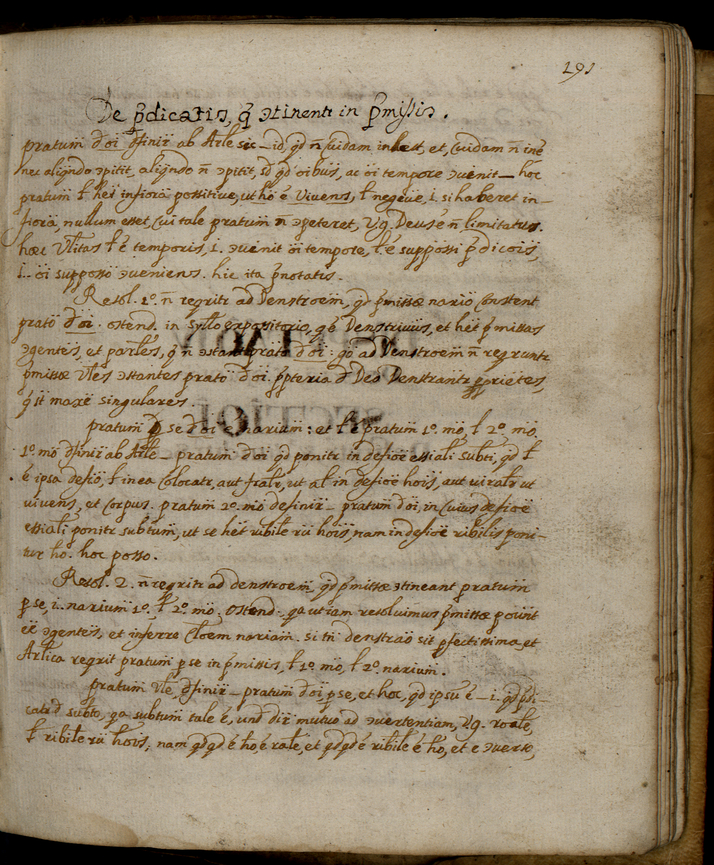 291
De p̄dicatis, q̄ ɔtinentr in p̄missis.
pratum̄ d̄oi d̄finir̄ ab Arle sic _ id, qd n̄ cuidam inest, et, cuidam n̄ inē
nec aliqn̄do ɔpitit, aliqn̄do n̄ ɔpitit, sd qd oībus, ac oī tempore ɔvenit _ hoc
pratum̄ ł het infiora possitive, ut hō ē vivens, ł negve, i. si haberet in-
fiora, nullum esset, cui tale pratum̄ n̄ ɔpeteret, v.g. Deus ē n̄ limitatus.
hæc vłitas ł ē temporis, i. ɔvenit oī tempore, ł ē suppossi p̄dicōis,
i. oī supposso ɔveniens. hic ita p̄notatis.
Resol. 1.º n̄ reqritr ad Denstroem̄, qd p̄missæ nario Constent
prato d̄oi. ostend. in syllo expossitorio, qē Denstrivus, et het p̄missas
ɔgentes, et parles, q̄ n̄ ɔstant prato d̄oi: go ad Denstroem̄ n̄ reqruntr
p̄missæ vłes ɔstantes prato d̄oi. p̄pteria d Deo Denstrantr pprietes,
q̄ st maxe singulares.
pratum̄ p se d̄oi ē narium̄: et ł ē pratum̄ 1.º mō, ł 2.º mō,
1.º mō d̄finir̄ ab Arle _ pratum̄ d̄oi qd ponitr in defioe essiali subti, qd ł
ē ipsa defio, ł in ea Colocatr, aut fralr, ut al in defioe hois, aut viralr ut
vivens, et Corpus. pratum̄ 2.º mō definir̄ _ pratum̄ d̄oi, in Cuius defioe
essiali ponitr subtum̄, ut se het ribile rū hois, nam in defioe ribilis poni-
tur ho. hoc posso.
Resol. 2. n̄ reqritr ad denstroem̄, qd p̄missæ ɔtineant pratum̄
p se, i. narium̄ 1.º, ł 2.º mō. Ostend. qa ut iam resolvimus p̄missæ pount
ēē ɔgentes, et inferre Cloem nariam. si tn̄ denstrao sit pfectissima, et
Arlica reqrit pratum̄ p se in p̄missis, ł 1.º mō, ł 2.º narium̄.
pratum̄ vłe, d̄finir̄ _ pratum̄ d̄oi, p se, et hoc, qd ipsu ē _ i. qd p̄di-
catr d subto, qa subtum̄ tale ē, und dir̄ mutuo ad ɔvertentiam, v.g. roale,
ł ribile rū hois, nam qdqd ē hō ē rale, et qdqd ē ribile ē hō, et e ɔverse,